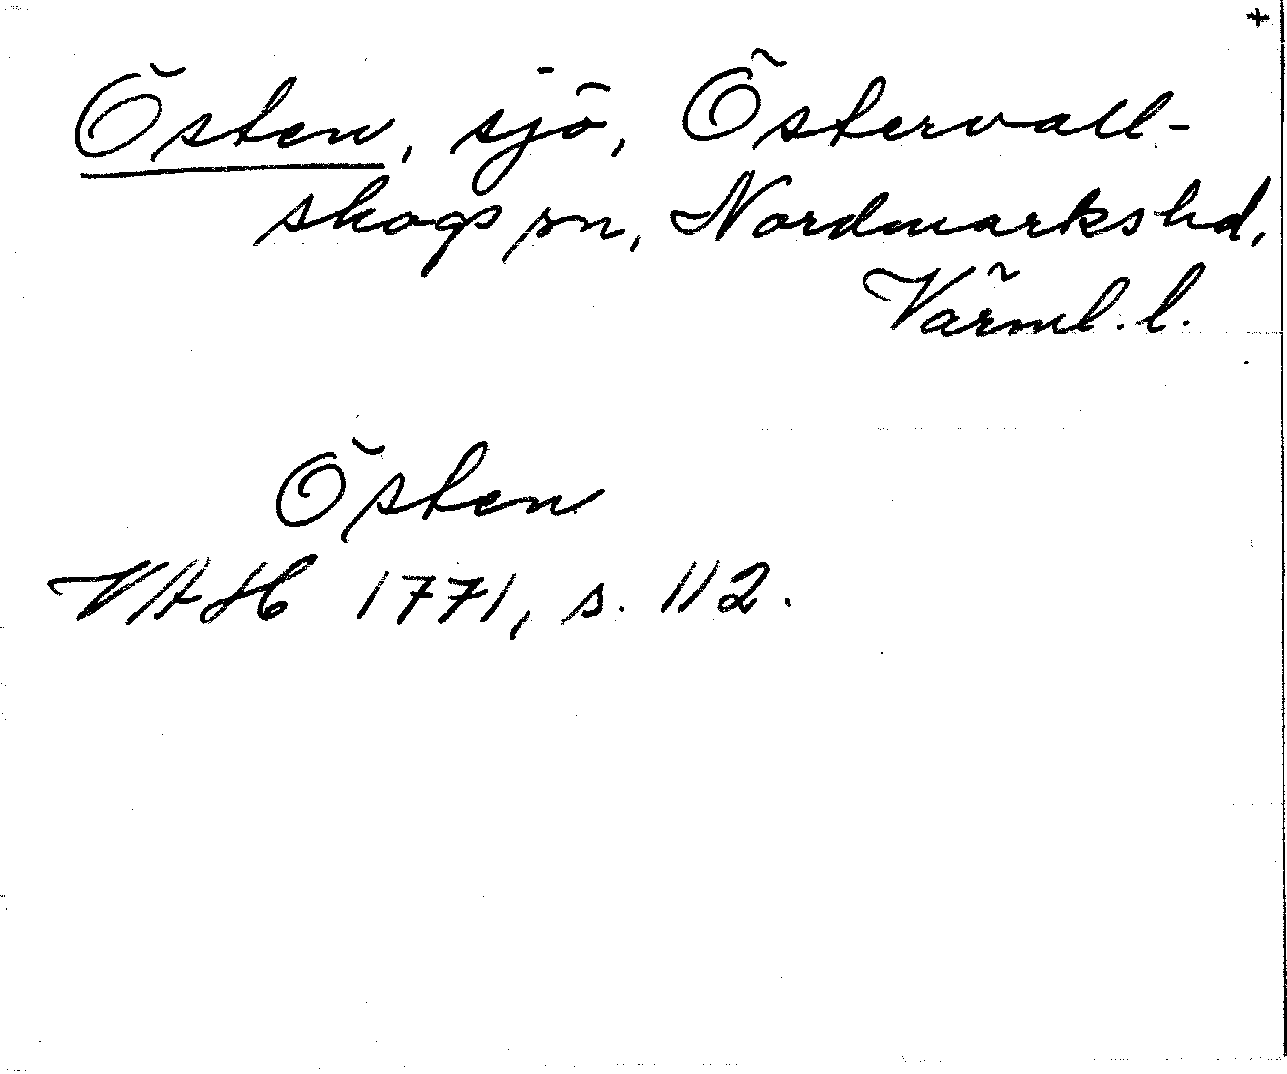 +
Östen, sjö, Östervall-
skogs sn, Nordmarkshd,
Värml. l.
Östen
VAH 1771, s. 112.